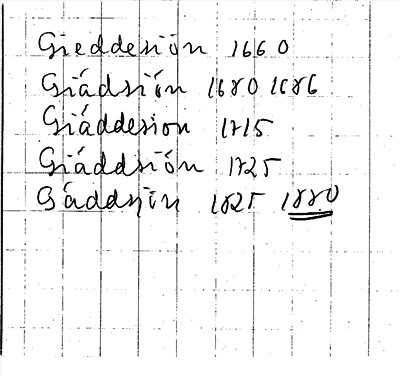 Gieddesión 1660
Giádsión 1680 1686
Giáddesion 1715
Giáddsión 1725
Gáddsjön 1825 1880